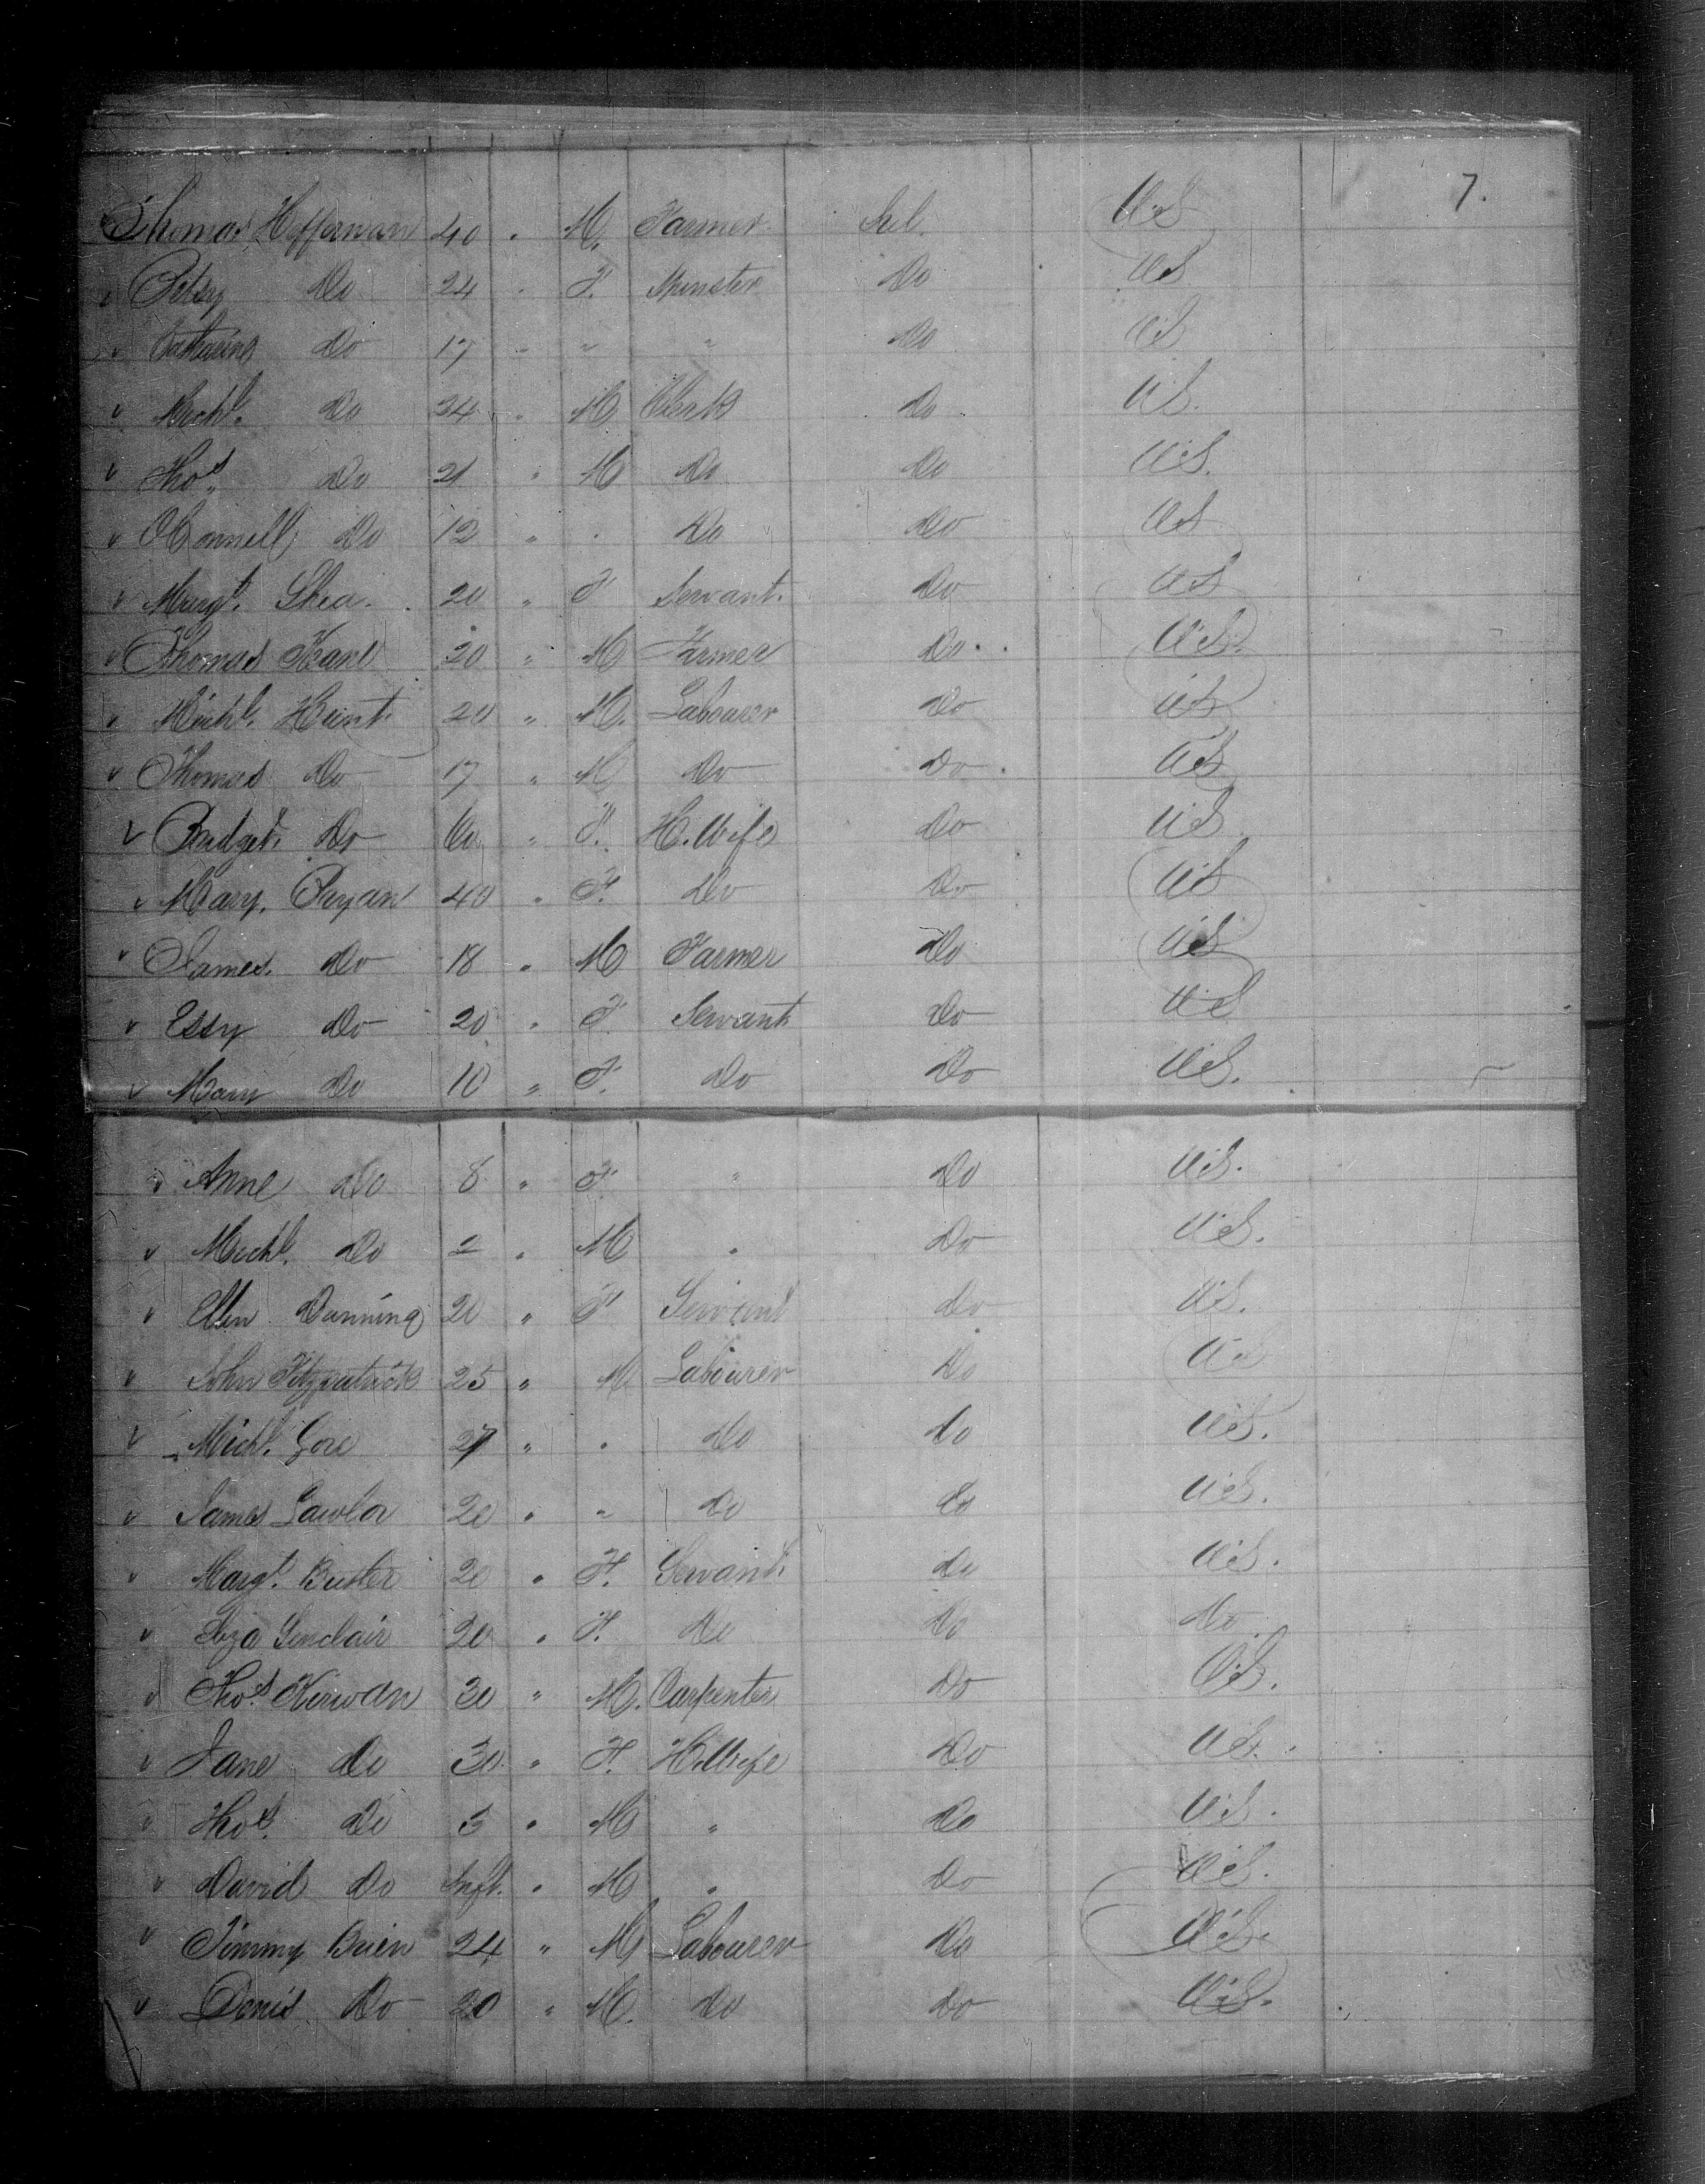 7.
Thomas Heffernan 40 " M. Farmer Irel. U.S
" Betsy Do 24 " F. Spinster Do U.S
" Catharine Do 17 " " " Do U.S
" Michl. Do 24 " M Clerk Do U.S.
" Thos. Do 21 " M Do Do U.S.
" OConnell Do 12 " " Do Do U.S
" Margt. Shea. 20 " F Servant. Do U.S
" Thomas Kane 20 " M Farmer Do U.S.
" Michl. Hunt. 20 " M. Labourer Do U.S
" Thomas Do 17 " M Do Do U.S
" Bridget. Do 60 " F. H. Wife Do U.S
" Mary. Ryan 40 " F. Do Do U.S
" James. Do 18 " M Farmer Do U.S
" Essy Do 20 " F. Servant Do U.S
" Mary Do 10 " F. Do Do U.S.
" Anne Do 8 " F. " Do U.S.
" Michl. Do 2 " M " Do U.S.
" Ellen 20 " F Servant Do U.S.
" John Fitzpatrick 25 " M Labourer Do U.S
" Michl. Gore 27 " " Do Do U.S.
" James Lawlor 20 " " Do Do U.S.
" Margt. Butler 20 " F. Servant Do U.S.
" Eliza Sinclair 20 " F. Do Do Do.
" Thos. Kirwan 30 " M. Carpenter Do U.S.
" Jane Do 30 " F. H. Wife Do U.S.
" Thos. Do 3 " M " Do U.S.
" David Do Inft. " M " Do U.S.
" Timmy Brien 24 " M Labourer Do U.S.
" Denis Do 20 " M. Do Do U.S.